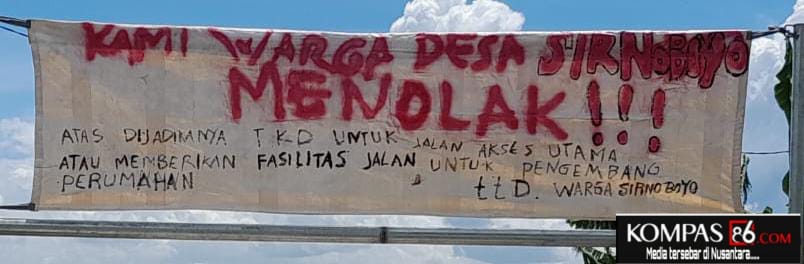 KAMI WARGA DESA SIRNOBOYO
MENOLAK!!!
ATAS DIJADIKANYA TKD UNTUK JALAN AKSES UTAMA
ATAU MEMBERIKAN FASILITAS JALAN UNTUK PENGEMBANG
PERUMAHAN
ttD. WARGA SIRNOBOYO
KOMPAS 86.COM
Media tersebar di Nusantara....